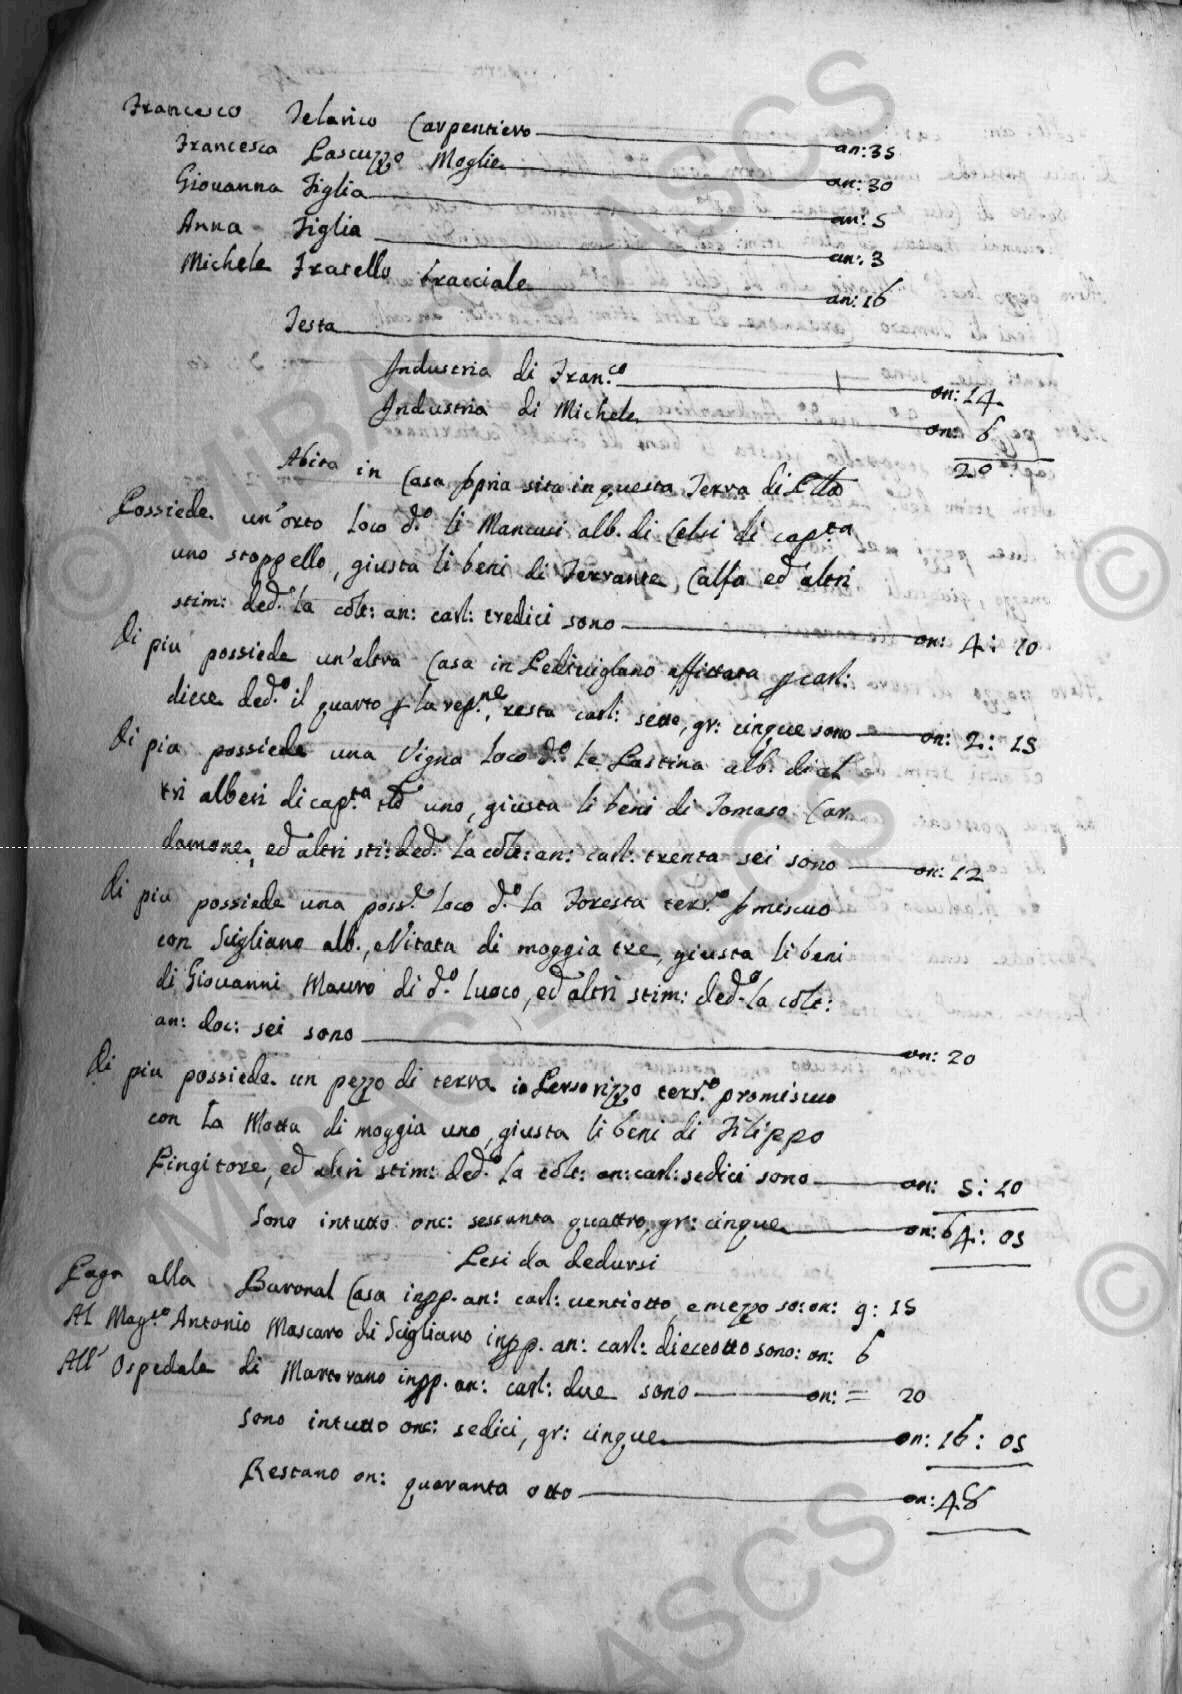 Francesco Telarico Carpentiero an: 35
Francesca Pascuzzo Moglie an: 30
Giovanna Figlia an: 5
Anna Figlia an: 3
Michele Fratello bracciale an: 16
Testa
Industria di Fran.co on: 14
Industria di Michele on: 6
20
Abita in Casa ppria sita in questa Terra di
Possiede un'orto loco d.o li Mancusi alb. di Celsi di cap.ta
uno stoppello, giusta li beni di Ferrante, Calfa ed altri
stim: ded.a la colt: an: carl: tredici sono on: 4: 10
Di piu possiede un'altra Casa in Pedivigliano affittata p carl:
diece ded.o il quarto p la rep.ne, resta carl: sette, gr: cinque sono on: 2: 15
Di piu possiede una Vigna loco d.o le Pastina alb. di al
tri alberi di cap.ta uno, giusta li beni di Tomaso Car
damone, ed altri sti: ded.a la colt: an: carl: trenta sei sono on: 12
Di piu possiede una poss.e loco d.o la Foresta terr.o pmiscuo
con Scigliano alb., e Vitata di moggia tre, giusta li beni
di Giovanni Mauro di d.o luoco, ed altri stim: ded.a la colt:
an: doc: sei sono on: 20
Di piu possiede un pezzo di terra in Persorizzo terr.o promiscuo
con la Motta di moggia uno, giusta li beni di Filippo
Pingitore, ed altri stim: ded.a la colt: an: carl: sedici sono on: 5: 10
Sono intutto onc: sessanta quattro, gr: cinque on: 64: 05
Pesi da dedursi
Paga alla Baronal Casa inpp. an: carl: ventiotto, e mezzo so: on: 9: 15
Al Mag.co Antonio Mascaro di Scigliano inpp. an: carl: dieceotto sono: on: 6
All' Ospedale di Martorano inpp. an: carl: due sono on: = 20
Sono intutto onc: sedici, gr: cinque on: 16: 05
Restano on: quaranta otto on: 48
© MIBAC - ASCS
© MIBAC - ASCS
©
©
ASCS